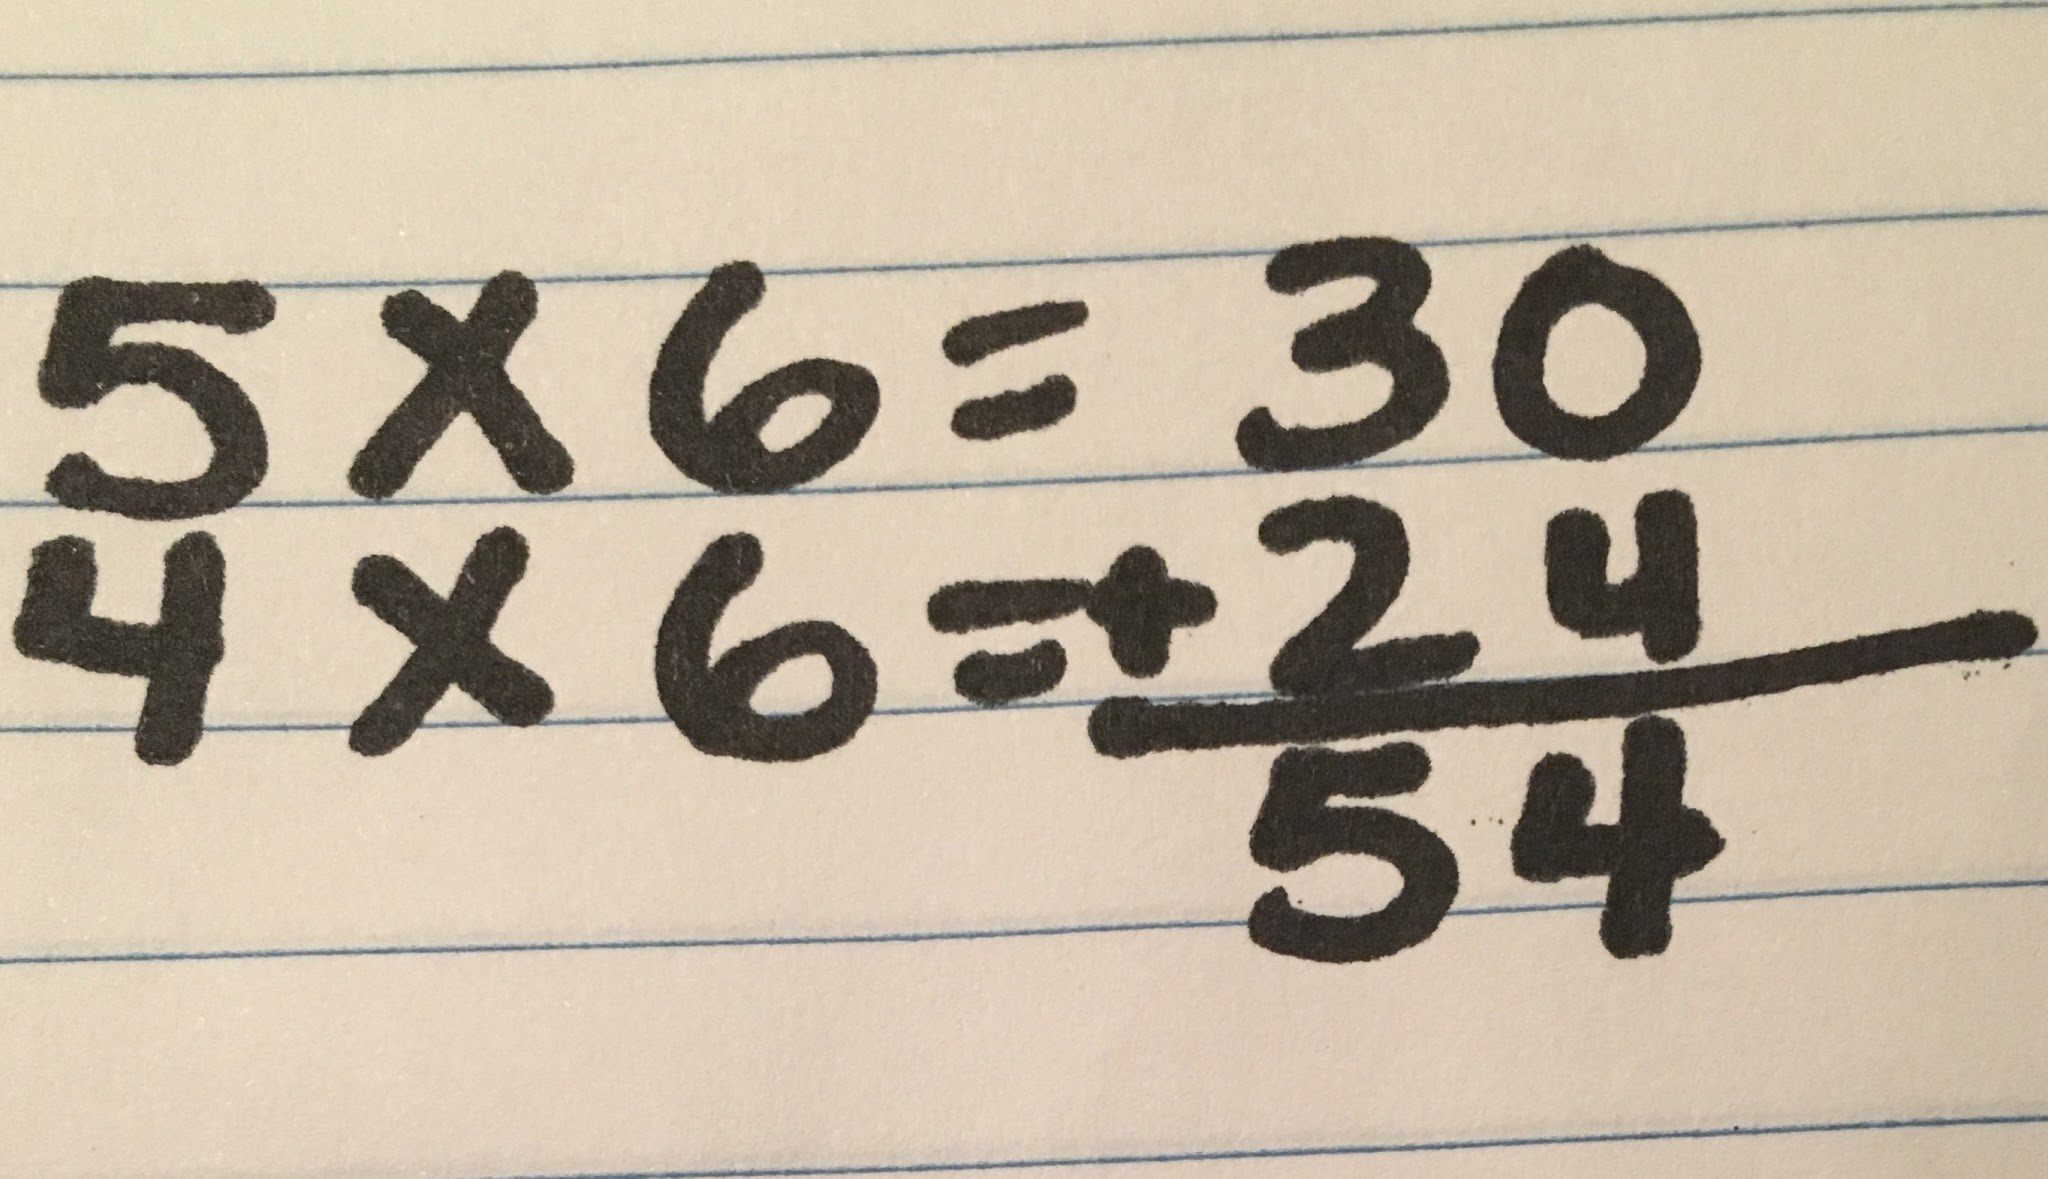 5 x 6 = 30
4 x 6 = + 24
54